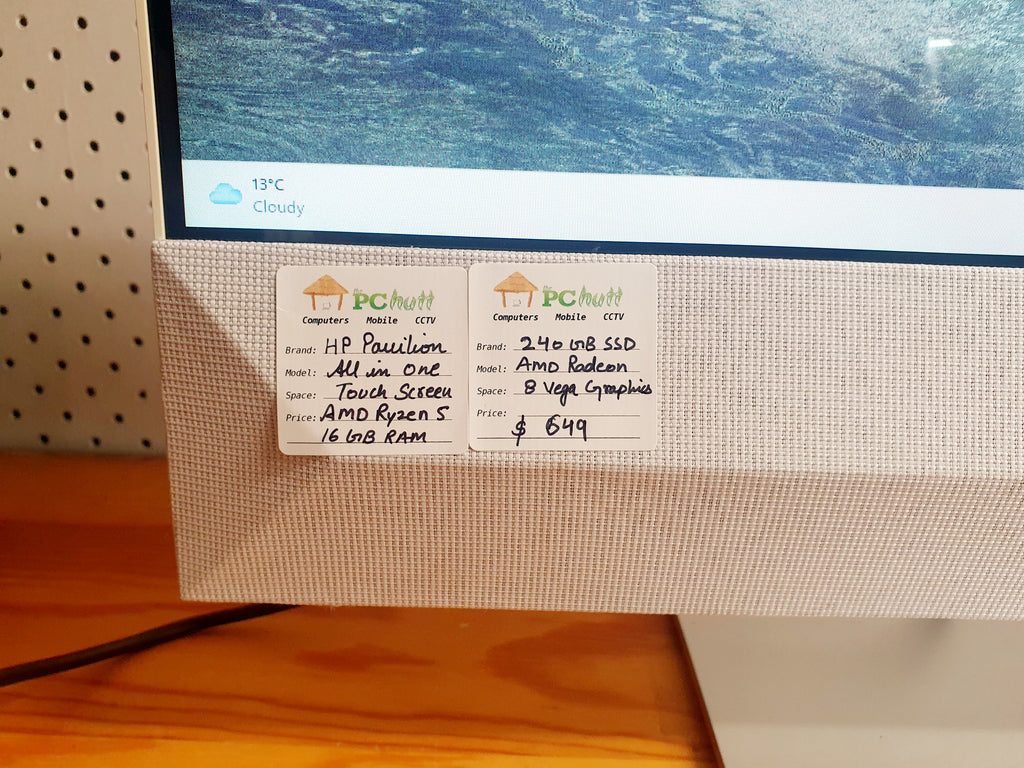 13°C
Cloudy
The PC hutt
Computers Mobile CCTV
Brand: HP Pavilion
Model: All in one
Space: Touch Screen
Price: AMD Ryzen 5
16 GB RAM
The PC hutt
Computers Mobile CCTV
Brand: 240 GB SSD
Model: AMD Radeon
Space: 8 Vega Graphics
Price:
$ 649